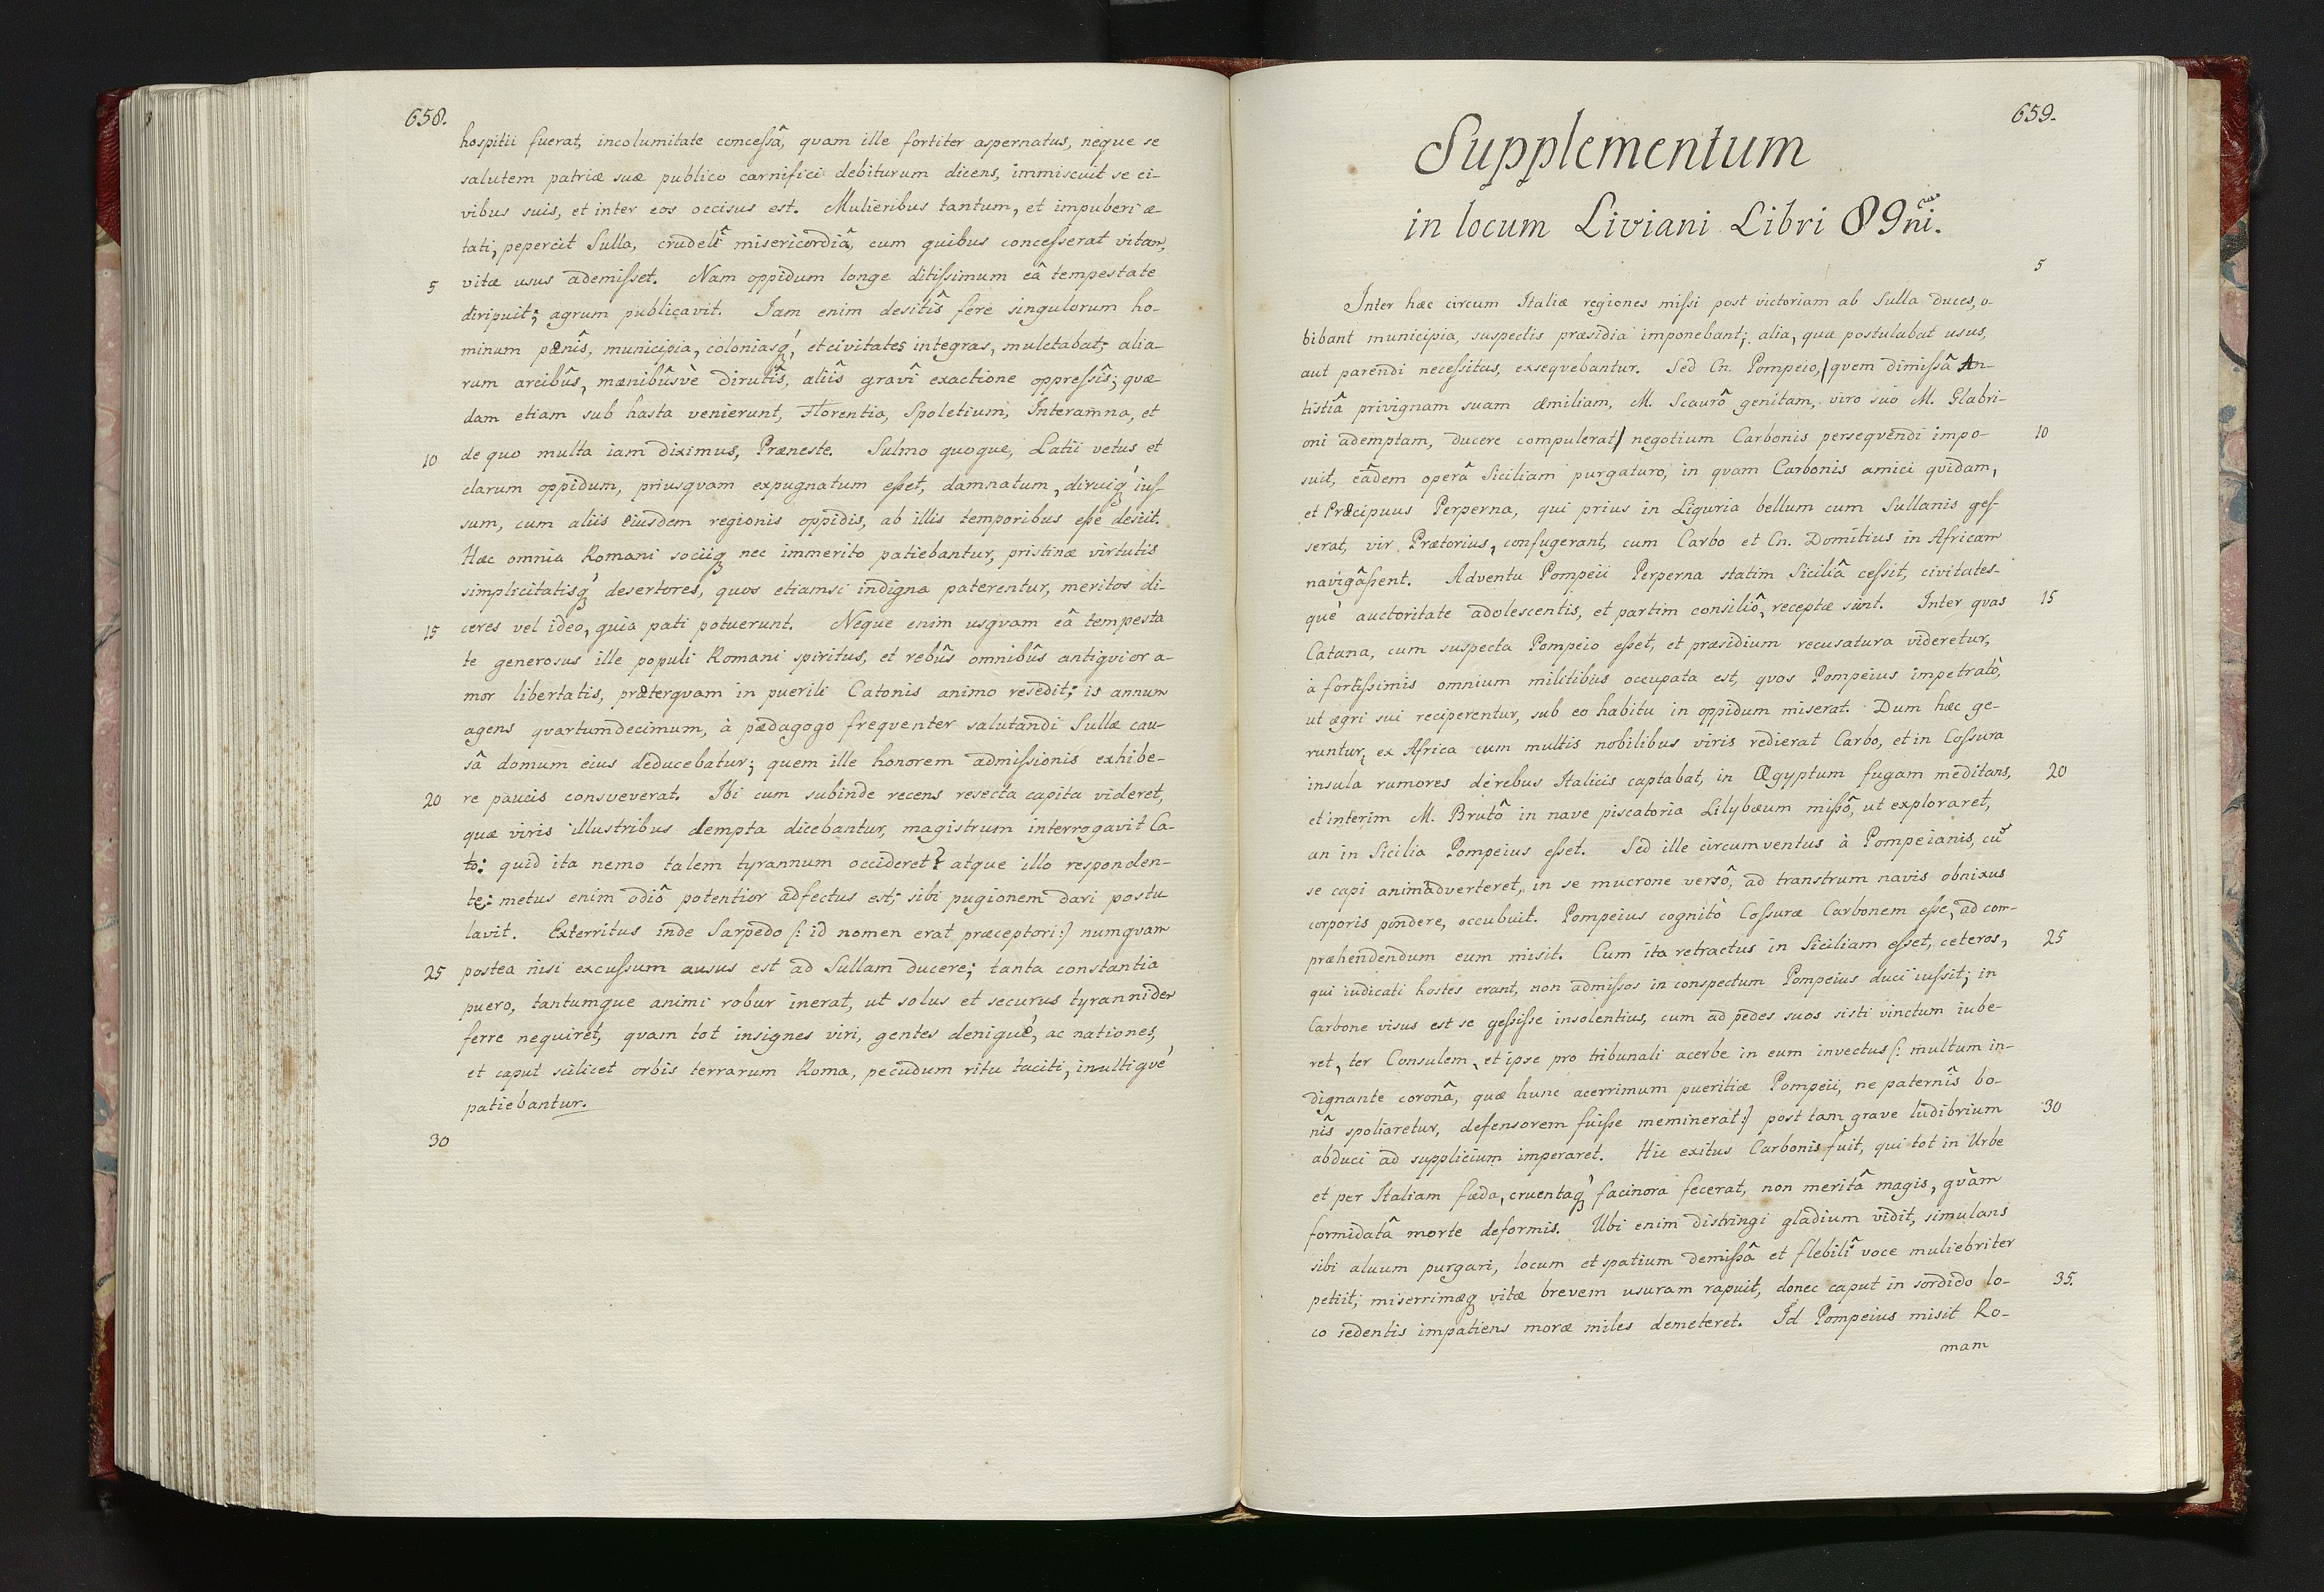 658.
hospitii fuerat, incolumitate concessâ, quam ille fortiter aspernatus, neque se
salutem patriæ suæ publico carnifici debiturum dicens, immiscuit se ci-
vibus suis, et inter eos occisus est. Mulieribus tantum, et impuberi æ-
tati, pepercit Sulla, crudelî misericordiâ, cum quibus concesserat vitam,
5 vitæ usus ademisset. Nam oppidum longe ditissimum eâ tempestate
diripuit; agrum publicavit. Iam enim desitîs fere singulorum ho-
minum pœnîs, municipia, coloniasq́, et civitates integras, mulctabat; alia-
rum arcibûs, mœnibûsvè dirutîs, aliîs gravî exactione oppressîs; quæ-
dam etiam sub hasta venierunt, Florentia, Spoletium, Interamna, et
10 de quo multa iam diximus, Præneste. Sulmo quoque, Latii vetus et
clarum oppidum, priusquam expugnatum esset, damnatum, diruiq́ ius-
sum, cum aliis eiusdem regionis oppidis, ab illis temporibus esse desiit.
Hæc omnia Romani sociiq nec immerito patiebantur, pristinæ virtutis
simplicitatisq́ desertores, quos etiamsi indigna paterentur, meritos di-
15 ceres vel ideo, quia pati potuerunt. Neque enim usquam eâ tempesta
te generosus ille populi Romani spiritus, et rebûs omnibûs antiquior a-
mor libertatis, præterquam in puerili Catonis animo resedit; is annum
agens quartumdecimum, à pædagogo frequenter salutandi Sullæ cau-
sâ domum eius deducebatur; quem ille honorem admissionis exhibe-
20 re paucis consueverat. Ibi cum subinde recens resecta capita videret,
quæ viris illustribus dempta dicebantur, magistrum interrogavit Ca-
to: quid ita nemo talem tyrannum occideret? atque illo responden-
te: metus enim odiô potentior adfectus est; sibi pugionem dari postu
lavit. Exterritus inde Sarpedo (: id nomen erat præceptori :) numquam
25 postea nisi excussum ausus est ad Sullam ducere; tanta constantia
puero, tantumque animi robur inerat, ut solus et securus tyrannidem
ferre nequiret, quam tot insignes viri, gentes deniqué, ac nationes,
et caput scilicet orbis terrarum Roma, pecudum ritu taciti, inultiqué
patiebantur.
30
659.
Supplementum
in locum Liviani Libri 89ni.
5
Inter hæc circum Italiæ regiones missi post victoriam ab Sulla duces, o-
bibant municipia, suspectis præsidia imponebant; alia, quæ postulabat usus,
aut parendi necessitas, exsequebantur. Sed Cn. Pompeio, / quem dimissâ An-
tistiâ privignam suam Æmiliam, M. Scaurô genitam, viro suo M. Glabri-
oni ademptam, ducere compulerat / negotium Carbonis persequendi impo- 10
suit, eâdem operâ Siciliam purgaturo, in quam Carbonis amici quidam,
et Præcipuus Perperna, qui prius in Liguria bellum cum Sullanis ges-
serat, vir Prætorius, confugerant, cum Carbo et Cn. Domitius in Africam
navigâssent. Adventu Pompeii Perperna statim Siciliâ cessit, civitates-
què auctoritate adolescentis, et partim consiliô, receptæ sunt. Inter quas 15
Catana, cum suspecta Pompeio esset, et præsidium recusatura videretur,
à fortissimis omnium militibus occupata est, quos Pompeius impetratò,
ut ægri sui reciperentur, sub eo habitu in oppidum miserat. Dum hæc ge-
runtur, ex Africa cum multis nobilibus viris redierat Carbo, et in Cossura
insula rumores de rebus Italicis captabat, in Ægyptum fugam meditans, 20
et interim M. Brutô in nave piscatoria Lilybæum missô, ut exploraret,
an in Sicilia Pompeius esset. Sed ille circumventus à Pompeianis, cū
se capi animadverteret, in se mucrone versô, ad transtrum navis obnixus
corporis pondere, occubuit. Pompeius cognitò Cossuræ Carbonem esse, ad com-
præhendendum eum misit. Cum ita retractus in Siciliam esset, ceteros, 25
qui iudicati hostes erant, non admissos in conspectum Pompeius duci iussit; in
Carbone visus est se gessisse insolentius, cum ad pedes suos sisti vinctum iube-
ret, ter Consulem, et ipse pro tribunali acerbe in eum invectus (: multum in-
dignante coronâ, quæ hunc acerrimum pueritiæ Pompeii, ne paternîs bo-
nîs spoliaretur, defensorem fuisse meminerat :) post tam grave ludibrium 30
abduci ad supplicium imperaret. Hic exitus Carbonis fuit, qui tot in Urbe
et per Italiam fœda, cruentaq́ facinora fecerat, non meritâ magis, quàm
formidatâ morte deformis. Ubi enim distringi gladium vidit, simulans
sibi alvum purgari, locum et spatium demissâ et flebilî voce muliebriter
petiit; miserrimæq vitæ brevem usuram rapuit, donec caput in sordido lo- 35.
co sedentis impatiens moræ miles demeteret. Id Pompeius misit Ro-
mam